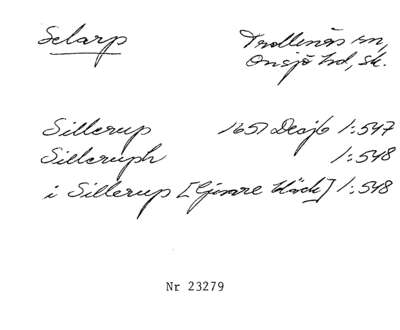 Selarp Trollenäs sn,
Onsjö hd, Sk.
Sillerup 1651 Decjb 1:547
Silleruph 1:548
i Sillerup [Giorre bläck] 1:548
Nr 23279